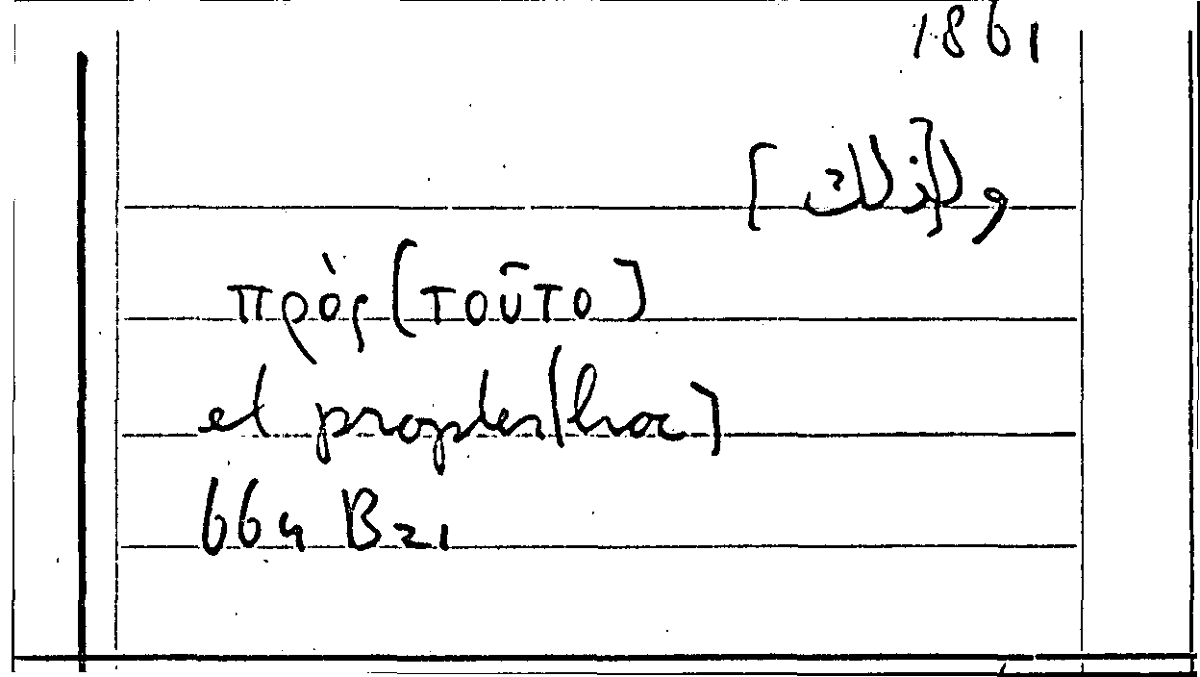 1861
ول[ذلك]
πρὸς [τοῦτο]
et propter [hoc]
664 B21